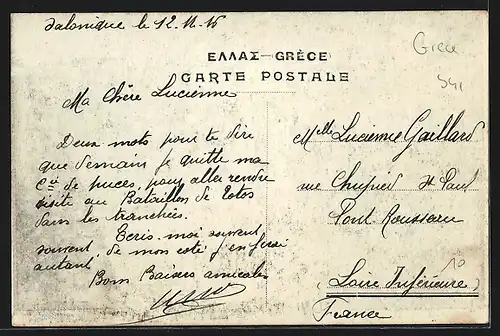 Salonique le 12.11.15
Grece
541
ΕΛΛΑΣ-GRÈCE
CARTE POSTALE
Ma Chère Lucienne
Deux mots pour te dire
que demain je quitte ma
Cie de puces, pour aller rendre
visite au Bataillon de Totos
dans les tranchées.
Ecris-moi souvent
souvent, de mon coté j'en ferai
autant
Bons Baisers amicales
Melle Lucienne Gaillard
rue St Paul
Pont Rousseau
(Loire Inférieure)
France